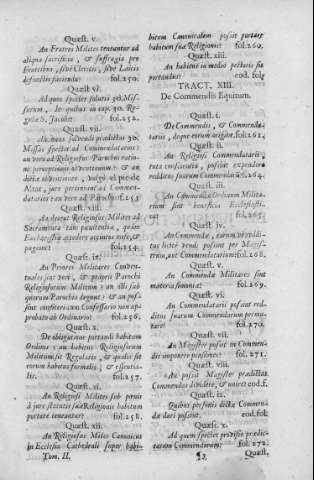 Quæst. v.
An Fratres Milites teneantur ad
aliqua sacrificia, & suffragia pro
fratribus, sivè Clericis, sivè Laicis
defunctis facienda? fol.250.
Quæst. vi.
Ad quos species solutio 30. Mis-
sarum, de quibus in cap. 30. Re-
gulæ S. Jacobi? fol.252.
Quæst. vii.
An onus dicendi prædictas 30.
Missas spectet ad Commendatarios:
an vero ad Religiosos Parochos ratio-
ne perceptionis
Altar, jure pertinent ad Commen-
datarios: an vero ad Parochos? f.253
Quæst. viii.
An debeat Religiosus Miles ad
Sacramenta tam pænitentiæ, quàm
Eucharistiæ accedere
pœna? fol.254.
Quæst. ix.
An Priores Militares Conven-
tuales sint verè, & proprii Parochi
Religiosorum Militum: an illi sub
quorum Parochiis degunt: & an pos-
sint confiteri cum Confessario non ap-
probato ab Ordinario? fol.256.
Quæst. x.
De obligatione portandi habitum
Ordinis: an habitus Religiosorum
Militum sit Regularis, & qualis sit
eorum habitus formalis, & essentia-
lis. fol.257.
Quæst. xi.
An Religiosi Milites sub pœnis
à jure statutis suæ Religionis habitum
portare teneantur? fol.258.
Quæst. xii.
An Religiosus Miles Canonicus
in Ecclesia Cathedrali super habi-
Tom. II.
bitum Canonicalem possit portare
habitum suæ Religionis? fol.260.
Quæst. xiii.
An habitus in medio pectoris sit
portandus? eod. fol.
TRACT. XIII.
De Commendis Equitum.
Quæst. i.
De Commendis, & Commenda-
tariis, deque eorum origine. fol.261.
Quæst. ii.
An Religiosi Commendatarii
possint expendere
redditus suarum Commendarum? fol.264.
Quæst. iii.
An Commendæ Ordinum Milita-
rium sint beneficia Ecclesiasti-
ca? fol.265.
Quæst. iv.
An Commendæ, earumve reddi-
tus licitè vendi possint per Magis-
trum, aut Commendatarium? fol.268.
Quæst. v.
An Commendæ Militares sint
materia simoniæ? fol.269.
Quæst. vi.
An Commendatarii possint red-
ditus suarum Commendarum permu-
tare? fol.270.
Quæst. vii.
An Magister possit in Commen-
dis imponere pensiones? fol.271.
Quæst. viii.
An possit Magister prædictas
Commendas dividere, & unire? eod.f.
Quæst. ix.
Quibus personis dictæ Commen-
dæ dari possint? eod. fol.
Quæst. x.
Ad quem spectet provisio prædic-
tarum Commendarum? fol. 272.
Quæst.